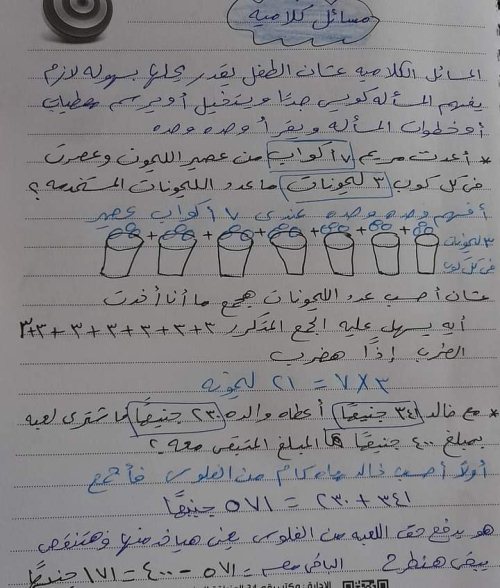 مسائل كلاميه
المسائل الكلاميه عشان الطفل يقدر يحلها بسهوله لازم
يفهم المسأله كويس جدًا ويتخيل أو يرسم معطيات
أو خطوات المسأله ويقرأ وحده وحده
* أعدت مريم ٧ أكواب من عصير الليمون وعصرت
فى كل كوب ٣ ليمونات ما عدد الليمونات المستخدمه؟
أفهم وحده وحده عندى ٧ أكواب عصير
+ + + + + +
٣ ليمونات
فى كل كوب
عشان أحسب عدد الليمونات هجمع ما أنا أخدت
أيه يسهل عليه الجمع المتكرر ٣+٣+٣+٣+٣+٣+٣
الضرب إذًا هضرب
٣ × ٧ = ٢١ ليمونه
* مع خالد ٣٤١ جنيهًا أعطاه والده ٢٣٠ جنيهًا ما شترى لعبه
بمبلغ ٤٠٠ جنيهًا المبلغ المتبقى معه؟
أولاً أحسب خالد معاه كام من الفلوس فأجمع
٣٤١ + ٢٣٠ = ٥٧١ جنيهًا
هو يدفع حق اللعبه من الفلوس يعنى هياخد منها وهتنقص
يبقى هنطرح الباقى معه = ٥٧١ - ٤٠٠ = ١٧١ جنيهًا